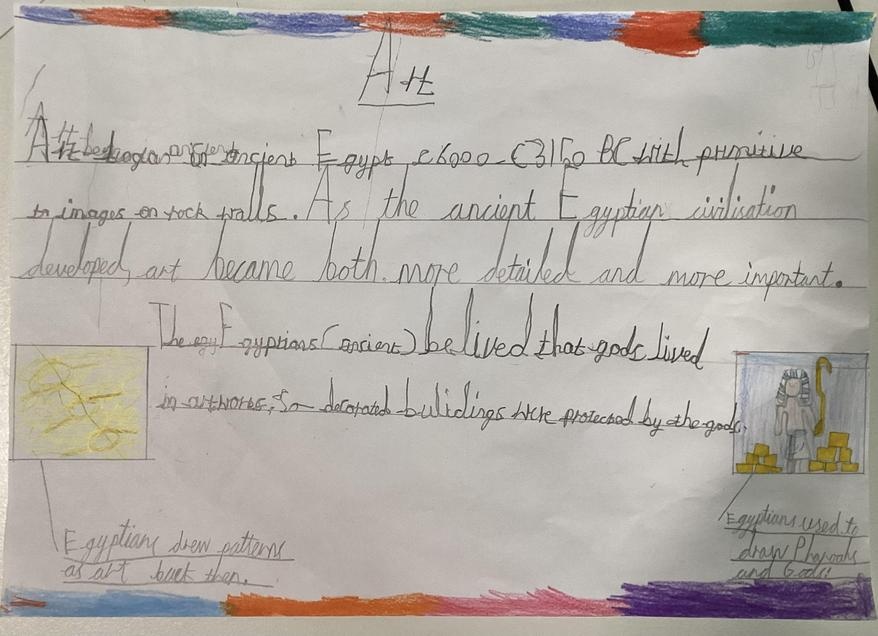 Art
Art began in ancient Egypt c6000-C3150 BC with primitive
images on rock walls. As the ancient Egyptian civilisation
developed, art became both more detailed and more important.
The Egyptians (ancient) belived that gods lived
in artworks, So decorated bulidings were protected by the gods.
Egyptians drew patterns
as art back then.
Egyptians used to
draw Pharoahs
and Gods!